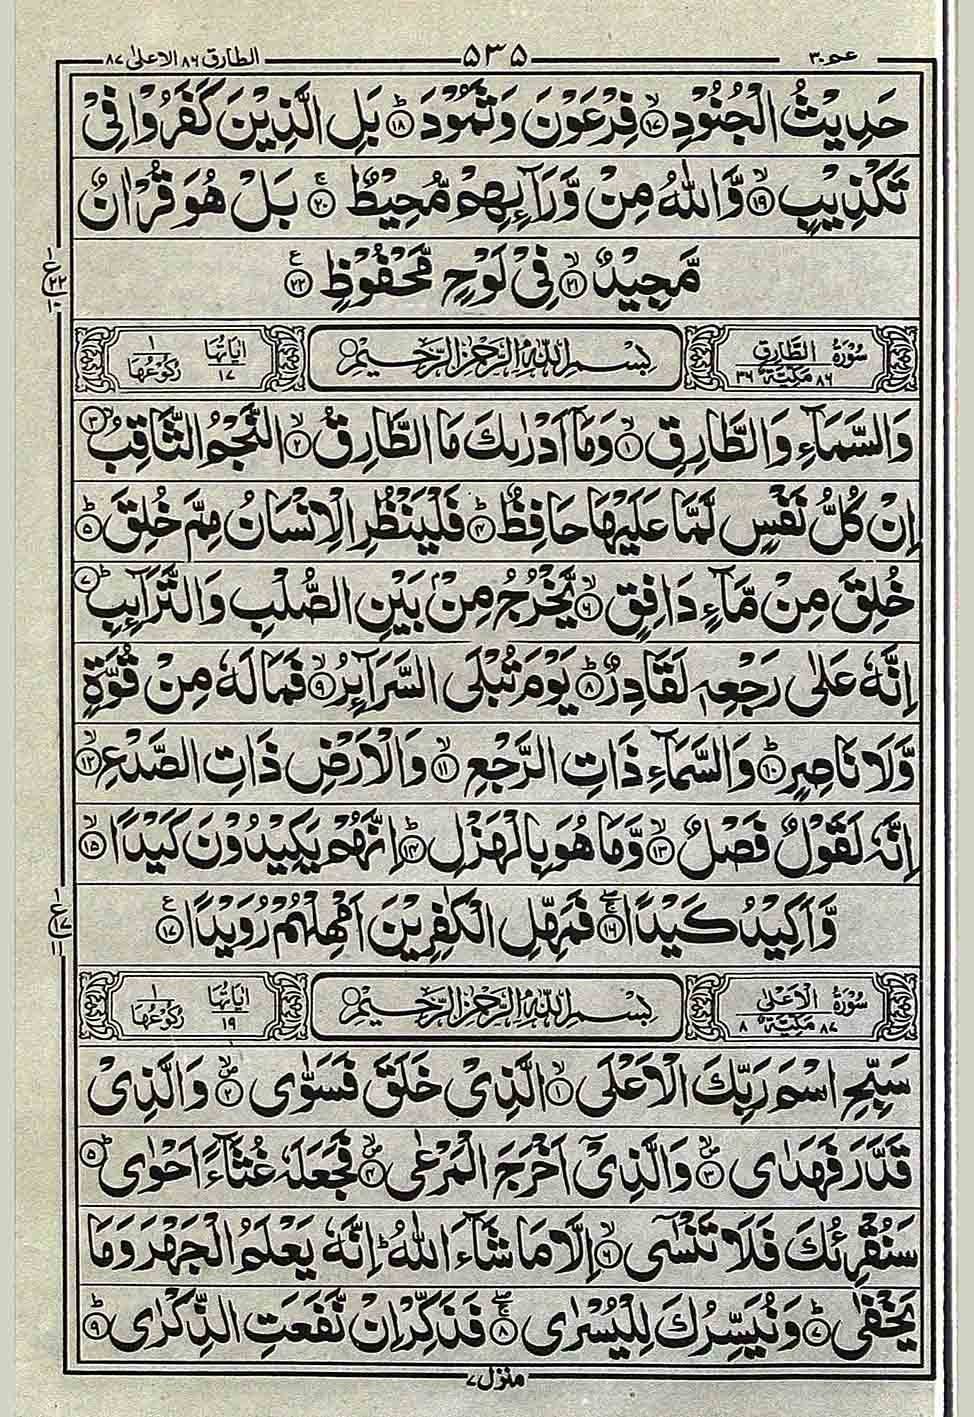 عم ٣٠ ٥٣٥ الطارق ٨٦ الاعلىٰ ٨٧
حَدِيْثُ الْجُنُوْدِ ۙ﴿۱۷﴾ فِرْعَوْنَ وَثَمُوْدَ ؕ﴿۱۸﴾ بَلِ الَّذِيْنَ كَفَرُوْا فِيْ
تَكْذِيْبٍ ۙ﴿۱۹﴾ وَّاللّٰهُ مِنْ وَّرَآئِهِمْ مُّحِيْطٌ ۚ﴿۲۰﴾ بَلْ هُوَ قُرْاٰنٌ
مَّجِيْدٌ ۙ﴿۲۱﴾ فِيْ لَوْحٍ مَّحْفُوْظٍ ﴿۲۲﴾ع
ع ١ ٢٢ ١٠
سُوْرَةُ الطَّارِقِ ٨٦ مَكِّيَّةٌ ٣٦ بِسْمِ اللّٰهِ الرَّحْمٰنِ الرَّحِيْمِ اٰيَاتُهَا ١٧ رُكُوْعُهَا ١
وَالسَّمَآءِ وَالطَّارِقِ ۙ﴿۱﴾ وَمَاۤ اَدْرٰىكَ مَا الطَّارِقُ ۙ﴿۲﴾ النَّجْمُ الثَّاقِبُ ۙ﴿۳﴾
اِنْ كُلُّ نَفْسٍ لَّمَّا عَلَيْهَا حَافِظٌ ؕ﴿۴﴾ فَلْيَنْظُرِ الْاِنْسَانُ مِمَّ خُلِقَ ؕ﴿۵﴾
خُلِقَ مِنْ مَّآءٍ دَافِقٍ ۙ﴿۶﴾ يَّخْرُجُ مِنْۢ بَيْنِ الصُّلْبِ وَالتَّرَآئِبِ ؕ﴿۷﴾
اِنَّهٗ عَلٰى رَجْعِهٖ لَقَادِرٌ ؕ﴿۸﴾ يَوْمَ تُبْلَى السَّرَآئِرُ ۙ﴿۹﴾ فَمَا لَهٗ مِنْ قُوَّةٍ
وَّلَا نَاصِرٍ ؕ﴿۱۰﴾ وَالسَّمَآءِ ذَاتِ الرَّجْعِ ۙ﴿۱۱﴾ وَالْاَرْضِ ذَاتِ الصَّدْعِ ۙ﴿۱۲﴾
اِنَّهٗ لَقَوْلٌ فَصْلٌ ۙ﴿۱۳﴾ وَّمَا هُوَ بِالْهَزْلِ ؕ﴿۱۴﴾ اِنَّهُمْ يَكِيْدُوْنَ كَيْدًا ۙ﴿۱۵﴾
وَّاَكِيْدُ كَيْدًا ۚۖ﴿۱۶﴾ فَمَهِّلِ الْكٰفِرِيْنَ اَمْهِلْهُمْ رُوَيْدًا ﴿۱۷﴾ع
ع ١ ١٧ ١١
سُوْرَةُ الْاَعْلٰى ٨٧ مَكِّيَّةٌ ٨ بِسْمِ اللّٰهِ الرَّحْمٰنِ الرَّحِيْمِ اٰيَاتُهَا ١٩ رُكُوْعُهَا ١
سَبِّحِ اسْمَ رَبِّكَ الْاَعْلَى ۙ﴿۱﴾ الَّذِيْ خَلَقَ فَسَوّٰى ۪ۙ﴿۲﴾ وَالَّذِيْ
قَدَّرَ فَهَدٰى ۪ۙ﴿۳﴾ وَالَّذِيْۤ اَخْرَجَ الْمَرْعٰى ۪ۙ﴿۴﴾ فَجَعَلَهٗ غُثَآءً اَحْوٰى ؕ﴿۵﴾
سَنُقْرِئُكَ فَلَا تَنْسٰۤى ۙ﴿۶﴾ اِلَّا مَا شَآءَ اللّٰهُ ؕ اِنَّهٗ يَعْلَمُ الْجَهْرَ وَمَا
يَخْفٰى ؕ﴿۷﴾ وَنُيَسِّرُكَ لِلْيُسْرٰى ۚۖ﴿۸﴾ فَذَكِّرْ اِنْ نَّفَعَتِ الذِّكْرٰى ؕ﴿۹﴾
منزل ٧